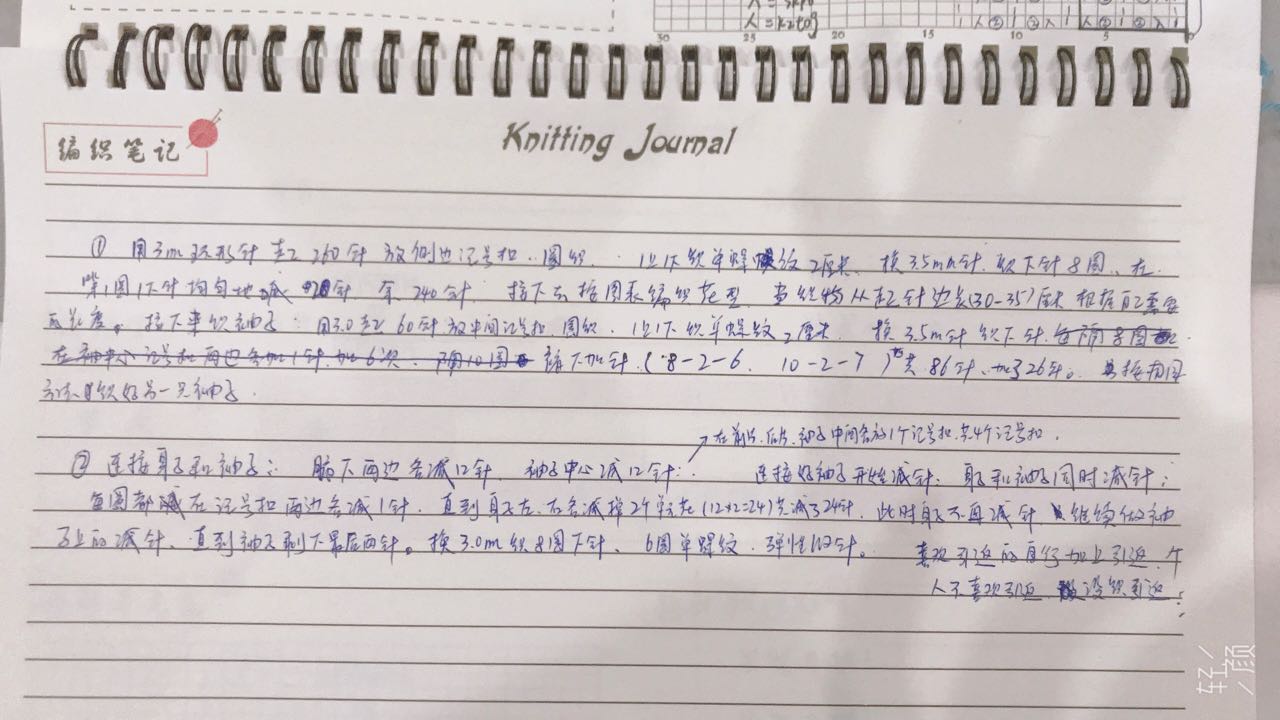 人 = k2tog
30 25 20 15 10 5
编织笔记
Knitting Journal
① 用3m环形针起260针 放侧边记号扣、圆织. 1上1下织单螺纹2厘米. 换3.5mm针.织下针8圈、在
第1圈1下针均匀地减20针. 余240针; 接下去按图表编织花型. 当织物从起针边长(30-35)厘米 根据自己需要
的长度。接下来织袖子: 用3.0起60针 放中间记号扣. 圆织. 1上1下织单螺纹2厘米. 换3.5m针织下针.每隔8圈
在袖中心记号扣两边各加1针.加6次. 隔10圈 腋下加针.(8-2-6. 10-2-7)共86针、加了26针。 按相同
方法织好另一只袖子.
在前片.后片.袖子中间各放1个记号扣.共4个记号扣.
② 连接身子和袖子: 腋下两边各减12针. 袖子中心减12针: 连接好袖子开始减针: 身子和袖子同时减针;
每圈都减在记号扣两边各减1针. 直到身子左.右各减掉2个单元花(12×2=24)共减了24针. 此时身子不再减针 继续做袖
子上的减针、直到袖子剩下最后两针。换3.0m织8圈下针、6圈单螺纹.弹性收针。
喜欢引返的自行加上引返.个
人不喜欢引返 没织引返.
轻颜